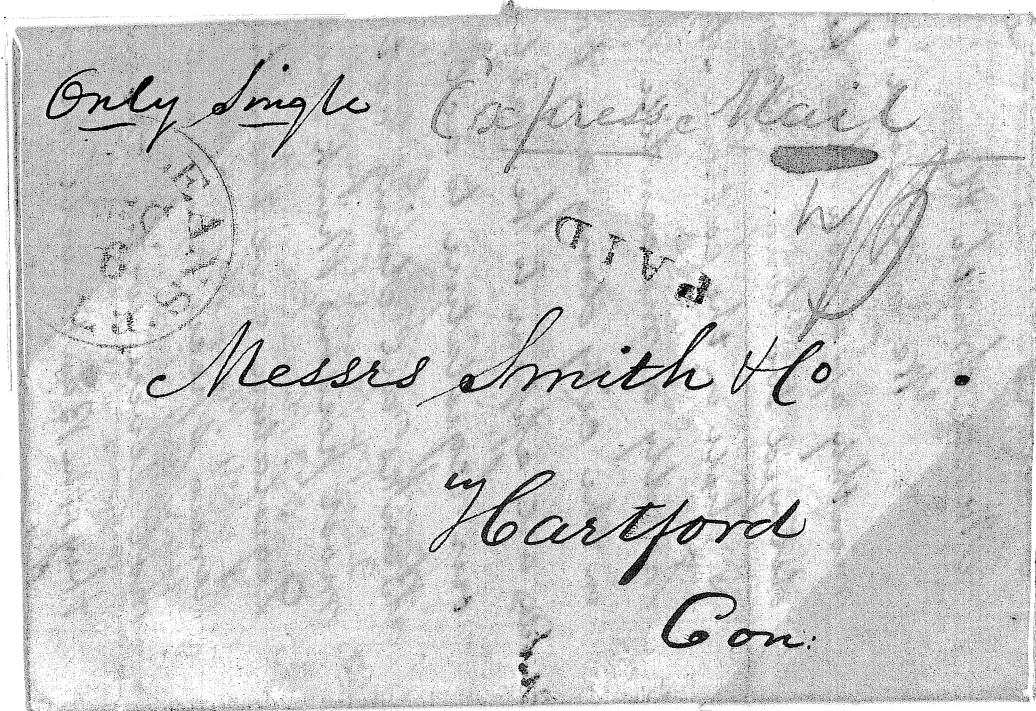 Only Single Express Mail
EANS
PAID
Messrs Smith & Co
Hartford
Con: